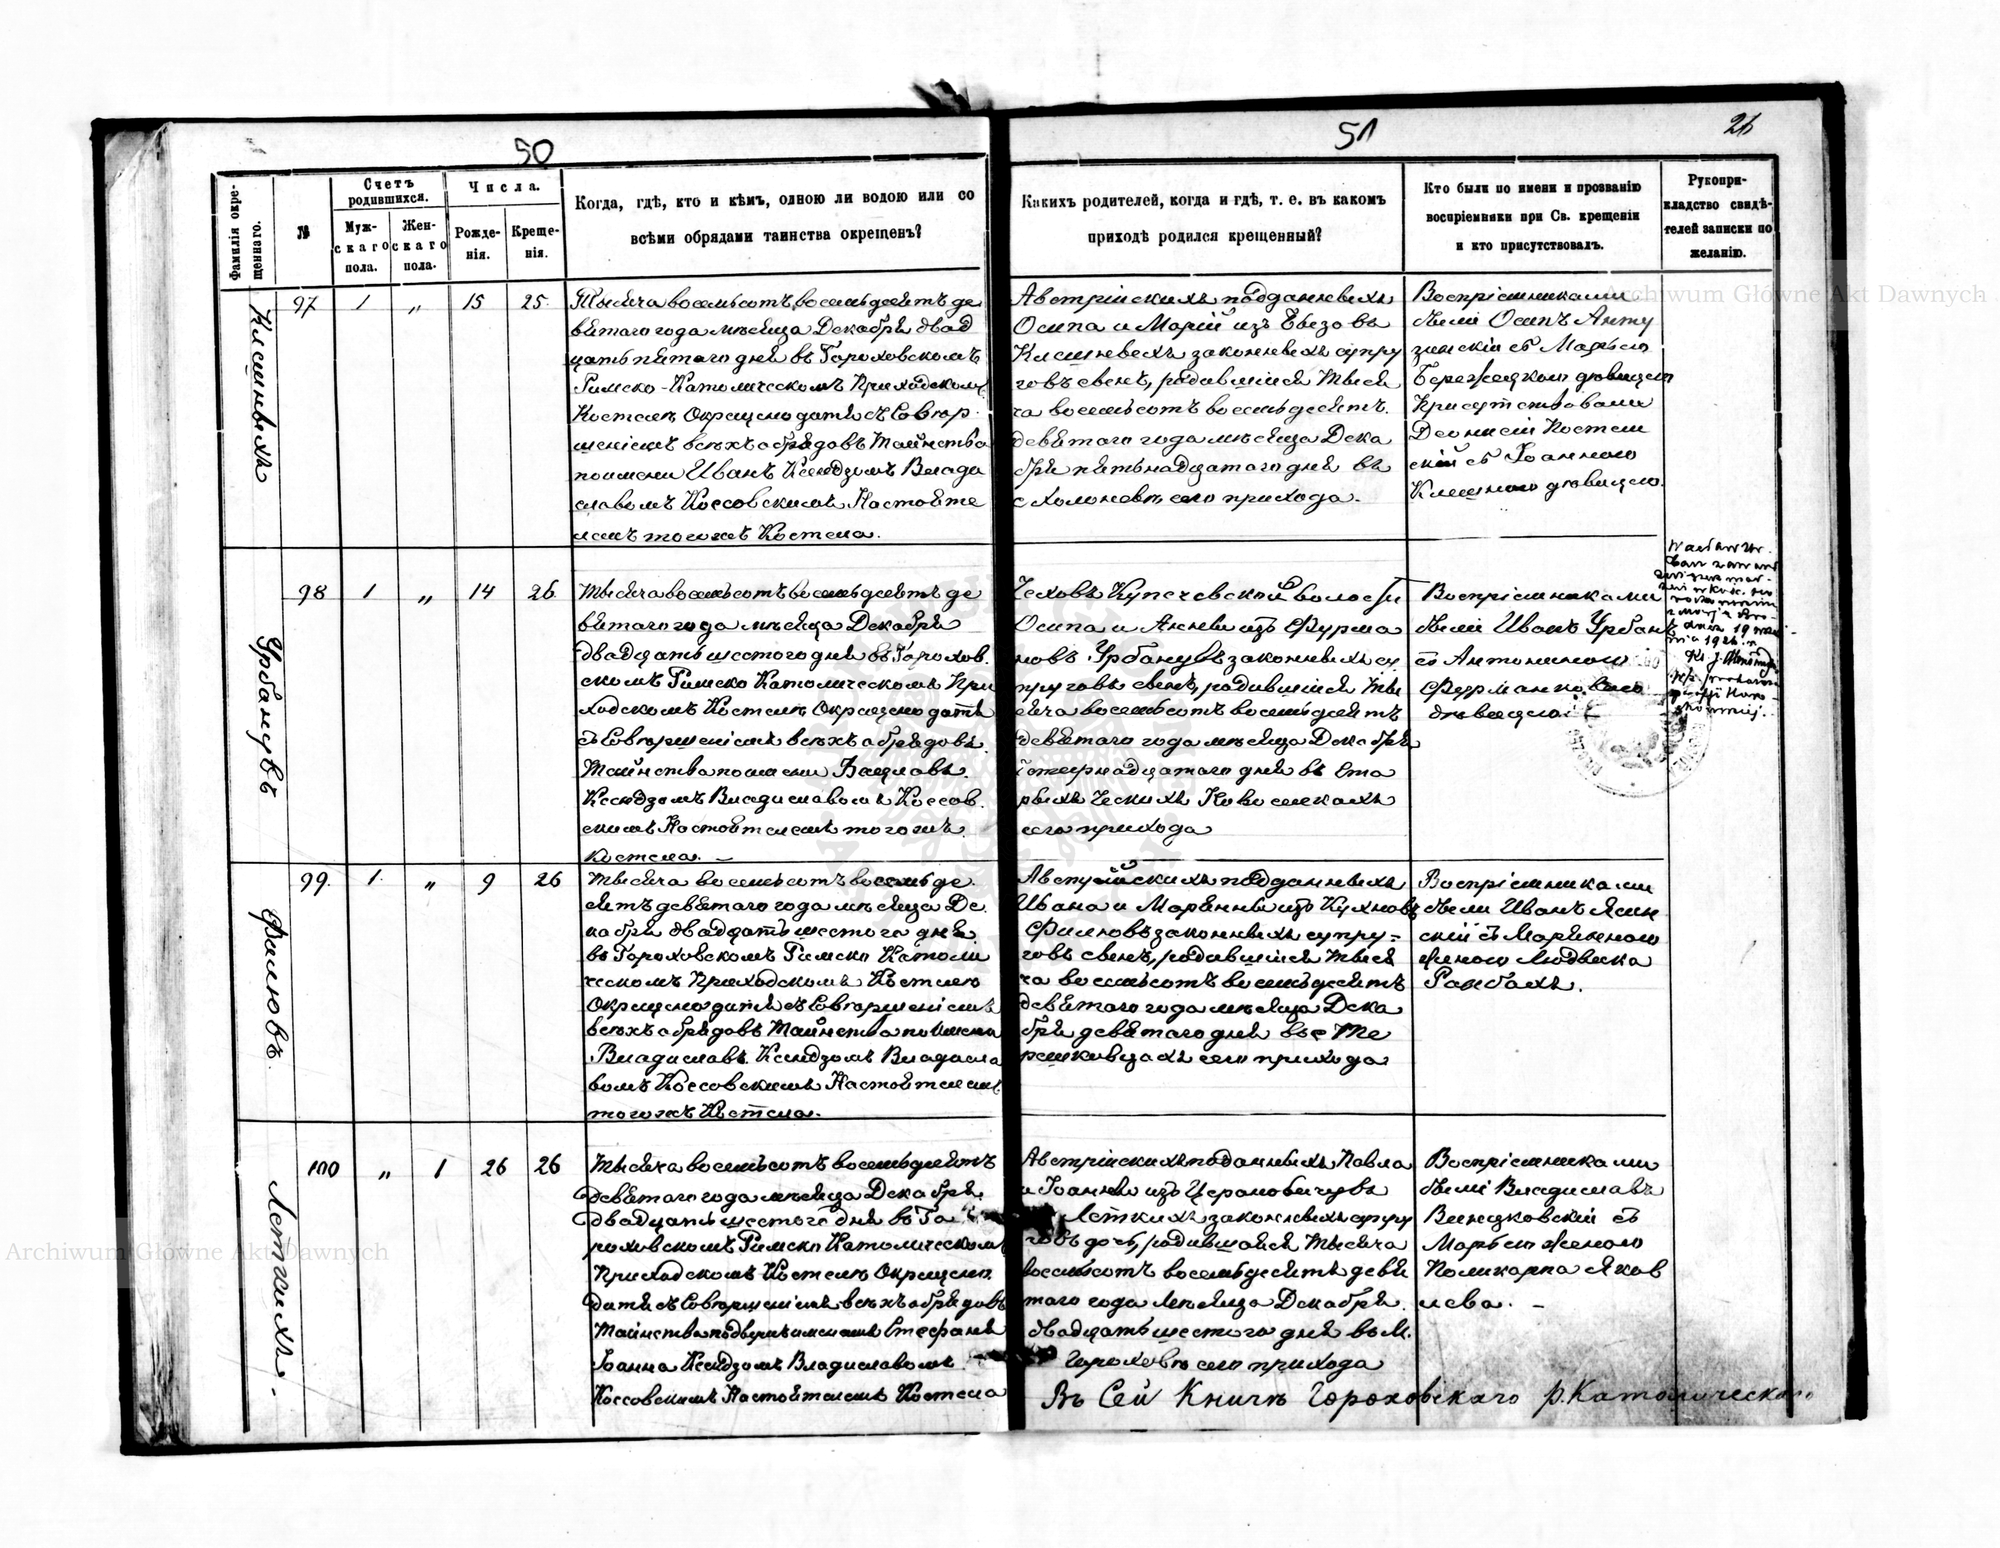 50
51
26
Фамилія окре-
щеннаго.
№
Счетъ
родившихся.
Муж-
скаго
пола.
Жен-
скаго
пола.
Числа.
Рожде-
нія.
Креще-
нія.
Когда, гдѣ, кто и кѣмъ, одною ли водою или со
всѣми обрядами таинства окрещенъ?
Какихъ родителей, когда и гдѣ, т. е. въ какомъ
приходѣ родился крещенный?
Кто были по имени и прозванію
воспріемники при Св. крещеніи
и кто присутствовалъ.
Рукопри-
кладство свидѣ-
телей записки по
желанію.
97 1 „ 15 25
Тысяча восемьсотъ восемьдесятъ де
вятаго года мѣсяца Декабря двад
цать пятаго дня въ Гороховскомъ
Римско-Католическомъ Приходскомъ
Костелѣ Окрещено дитя съ Совер
шеніемъ всѣхъ обрядовъ Таинства
по имени Иванъ Ксендзомъ Влади
славомъ Коссовскимъ Настояте
лемъ того жъ Костела.
Австрійскихъ подданныхъ
Осипа и Маріи изъ
законныхъ супру
говъ сынъ, родившійся тыся
ча восемьсотъ восемьдесятъ
девятаго года мѣсяца Дека
бря пятьнадцатаго дня въ
с Холоневѣ сего прихода.
Воспріемниками
были Осипъ Анту
зинскій съ Марьею
дѣвицею
Присутствовали
съ Іоанною
дѣвицею.
98 1 „ 14 26
Урбанувъ
Тысяча восемьсотъ восемьдесятъ де
вятаго года мѣсяца Декабря
двадцать шестого дня въ Горохов
скомъ Римско Католическомъ При
ходскомъ Костелѣ Окрещено дитя
съ Совершеніемъ всѣхъ обрядовъ
Таинства по имени Вацлавъ
Ксендзомъ Владиславомъ Коссов
скимъ Настоятелемъ того жъ
Костела. —
Чеховъ Купечевской волости
Осипа и Анны изъ Фурма
новъ Урбанувъ законныхъ су
пруговъ сынъ, родившійся ты
сяча восемьсотъ восемьдесятъ
девятаго года мѣсяца Декабря
четырнадцатаго дня въ Ста
рыхъ Ческихъ Новоселкахъ
сего прихода
Воспріемниками
были Иванъ Урбанъ
съ Антониною
дѣвицею
99. 1. „ 9 26
Филювъ
Тысяча восемьсотъ восемьде
сятъ девятаго года мѣсяца Де
кабря двадцать шестого дня
въ Гороховскомъ Римско Католи
ческомъ Приходскомъ Костелѣ
Окрещено дитя съ Совершеніемъ
всѣхъ обрядовъ Таинства по имени
Владиславъ Ксендзомъ Владисла
вомъ Коссовскимъ Настоятелемъ
того жъ Костела.
Австрійскихъ подданныхъ
Ивана и Маріанны изъ Кухновъ
Филювъ законныхъ супру-
говъ сынъ, родившійся тыся
ча восемьсотъ восемьдесятъ
девятаго года мѣсяца Дека
бря девятаго дня въ с Те
решковцахъ сего прихода
Воспріемниками
были Иванъ Ясин
скій съ Маріанною
женою Людвика
100 „ 1 26 26
Леткихъ.
Тысяча восемьсотъ восемьдесятъ
девятаго года мѣсяца Декабря
двадцать шестого дня въ Го
роховскомъ Римско Католическомъ
Приходскомъ Костелѣ Окрещено
дитя съ Совершеніемъ всѣхъ обрядовъ
Таинства подъ именемъ Стефанія
Іоанна Ксендзомъ Владиславомъ
Коссовскимъ Настоятелемъ Костела
Австрійскихъ подданныхъ Павла
и Іоанны изъ
Леткихъ законныхъ супру
говъ дочь, родившаяся тысяча
восемьсотъ восемьдесятъ девя
таго года мѣсяца Декабря
двадцать шестого дня въ М.
Гороховѣ сего прихода
Воспріемниками
были Владиславъ
Винцковскій съ
Марьею женою
Поликарпа Яков
лева. —
Въ Сей Книгѣ Гороховскаго Р.Католическаго
Archiwum Główne Akt Dawnych
Archiwum Główne Akt Dawnych